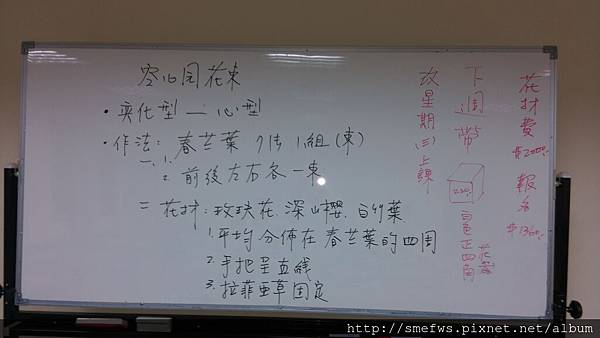 空心圓花束
・変化型 — 心型
・作法：春芒葉 7传1組(束)
一、1.
2. 前後左右各一束
二 花材：玫瑰花．深山櫻．白竹葉
1. 平均分佈在春芒葉的四周
2. 手把呈直线
3. 拉菲亜草固定
花材費 $2000. 報名 $1360.
下週帶 白色正四角 花器
改星期(三)上課
http://smefws.pixnet.net/album